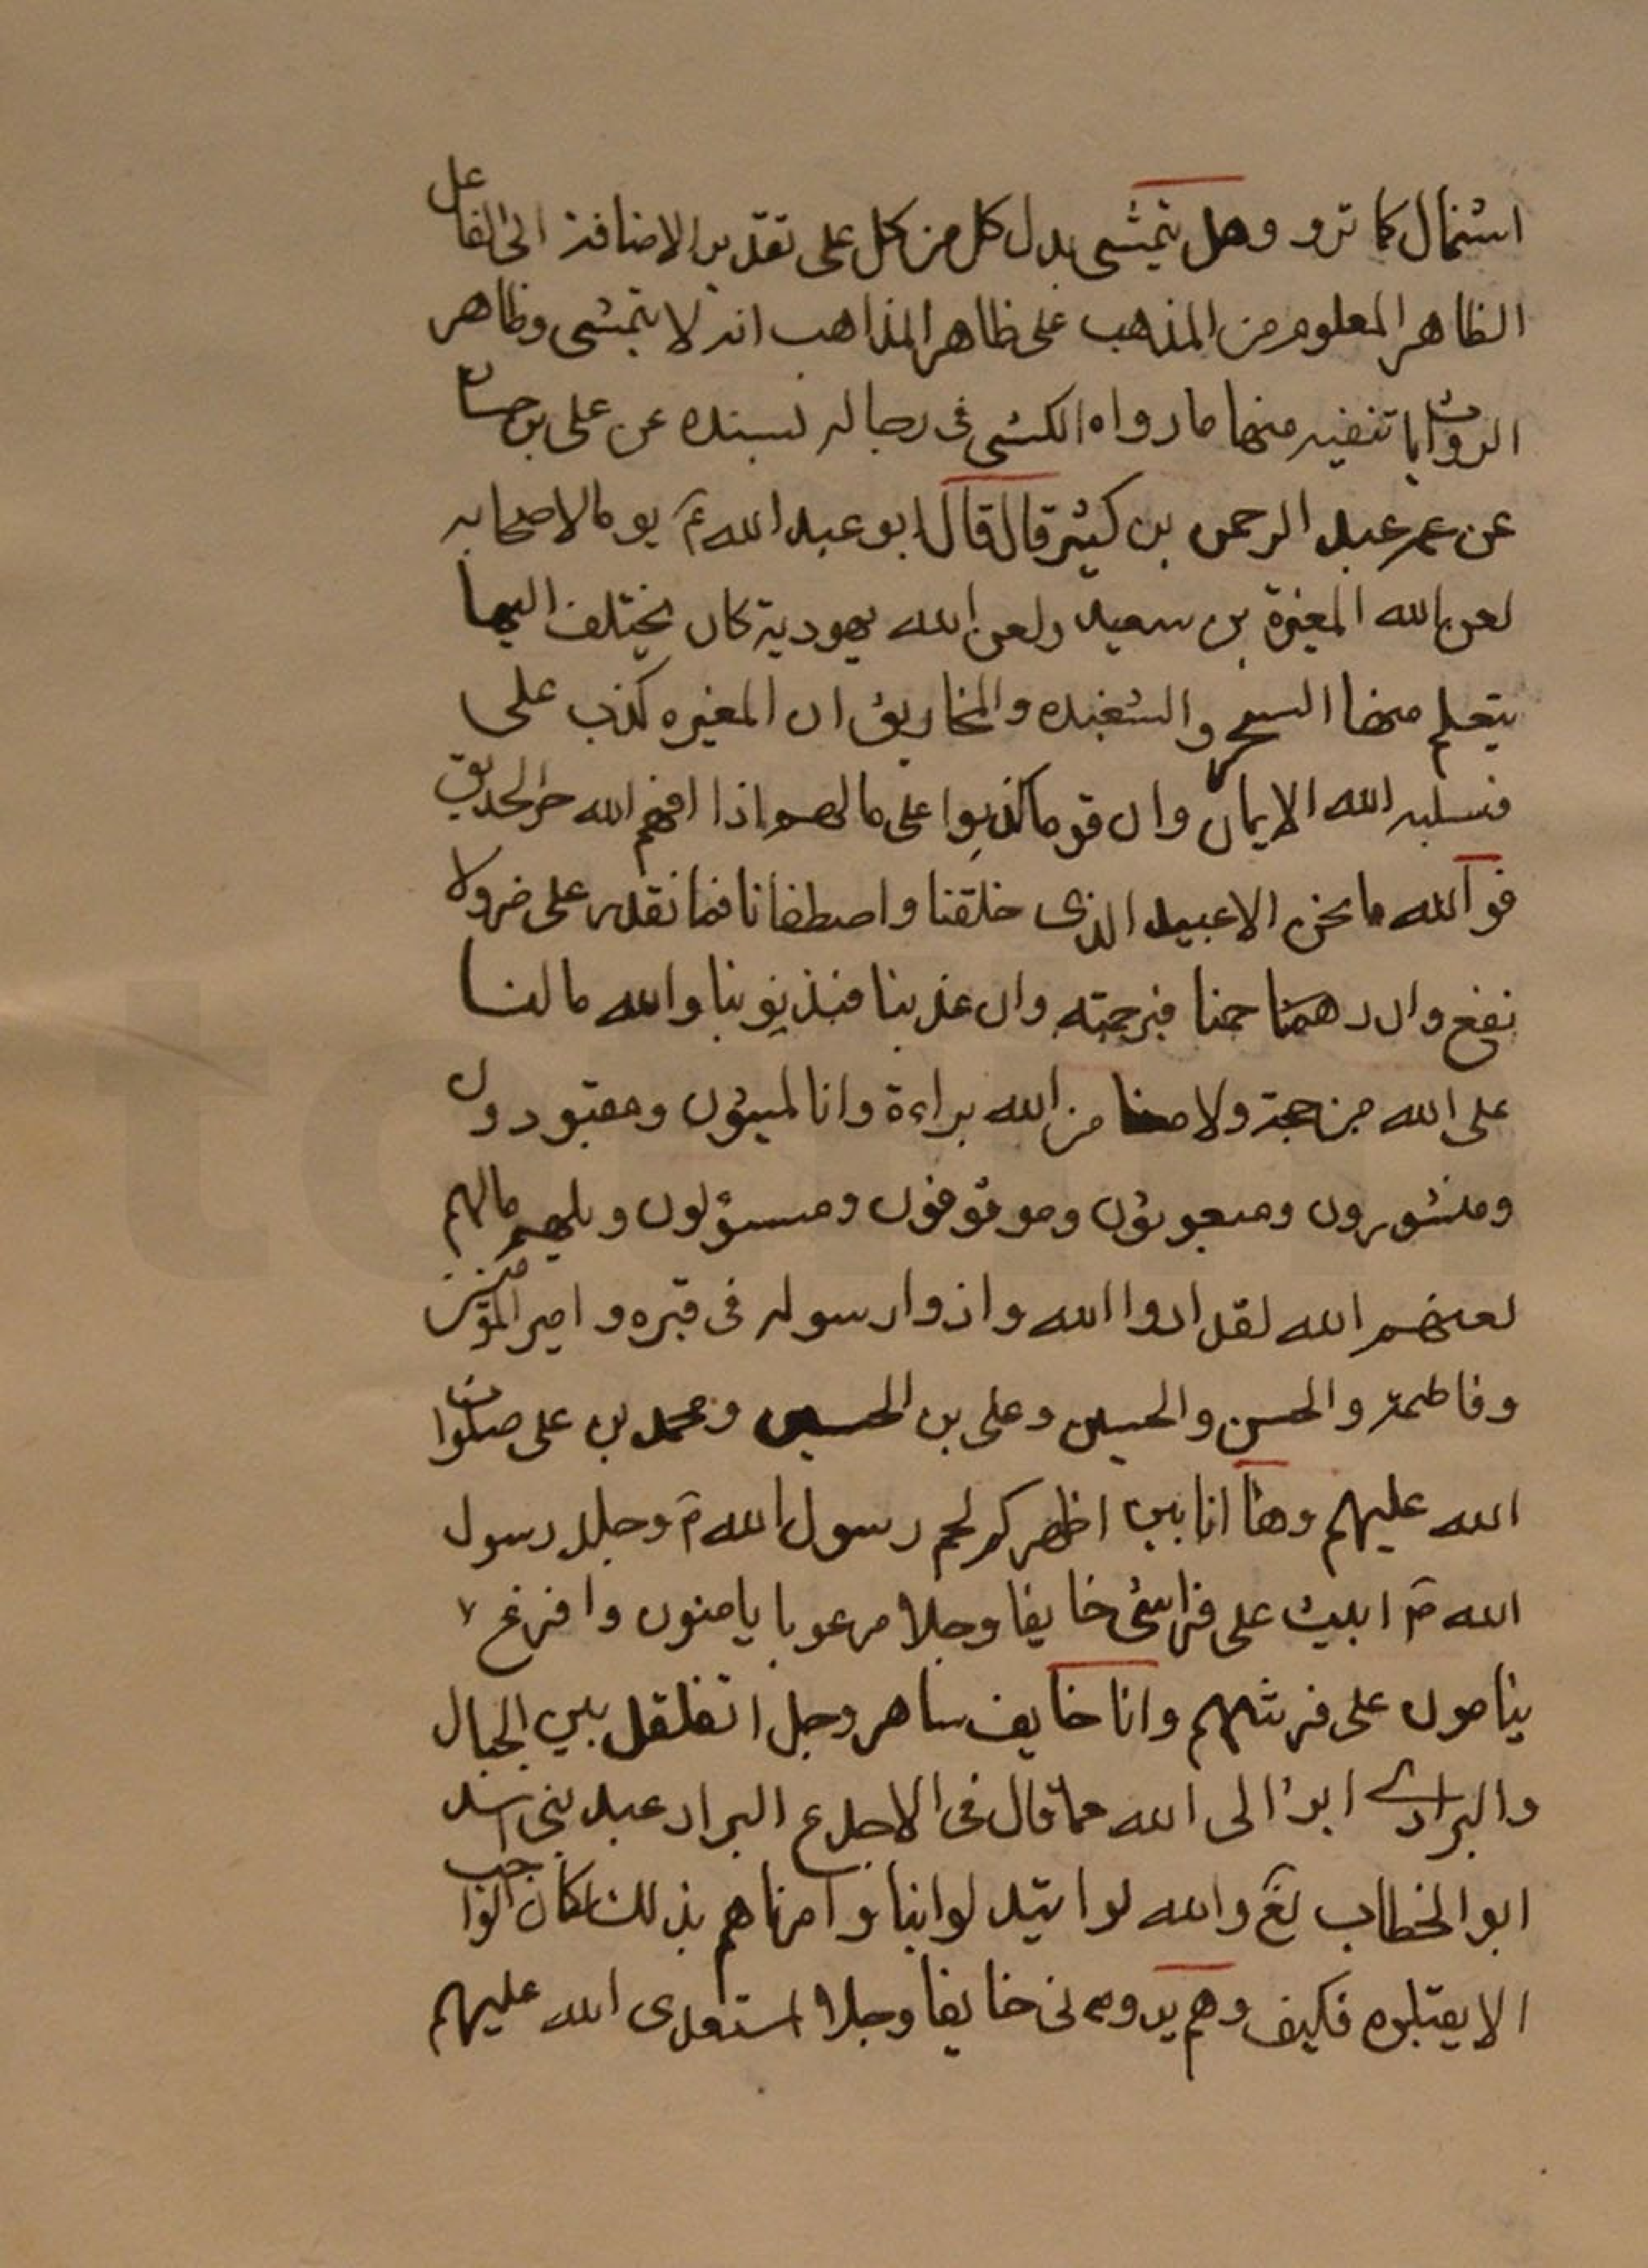 اشتمال كما ترو وهل يتمشى بدل كل من كل على تقدير الاضافة الى الفاعل
الظاهر المعلوم من المذهب على ظاهر المذاهب انه لا يتمشى وظاهر
الروايات تنفيه منها ما رواه الكشى فى رجاله بسنده عن على بن حسان
عن عمر عبد الرحمن بن كثير قال قال ابو عبد الله ع يوما لاصحابه
لعن الله المغيرة بن سعيد ولعن الله يهودية كان يختلف اليها
يتعلم منها السحر والشعبده والمخاريق ان المغيره كذب على
فسلبه الله الايمان وان قوما كذبوا على ما لهم اذا اقهم الله حر الحديق
فو الله ما نحن الا عبيد الذى خلقنا واصطفانا فما نقدر على ضر ولا
نفع وان رحمنا فبرحمته وان عذبنا فبذنوبنا والله ما لنا
على الله من حجة ولا معنا من الله براءة وانا لميتون ومقبورون
ومنشورون ومبعوثون وموقوفون ومسؤلون ويلهم مالهم
لعنهم الله لقد اذوا الله واذوا رسوله فى قبره وامير المؤمنين
وفاطمة والحسن والحسين وعلى بن الحسين ومحمد بن على صلوات
الله عليهم وها انا بين اظهركم لحم رسول الله ص وجلد رسول
الله ص ابيت على فراشى خايفا وجلا مرعوبا يامنون وافزع
ينامون على فرشهم وانا خايف ساهر وجل اتقلقل بين الجبال
والبرارى ابرا الى الله مما قال فى الاجدع البراد عبد بنى اسد
ابو الخطاب لع والله لو ابتدلوا بنا وامرناهم بذلك لكان الواجب
الا يقبلوه فكيف وهم يرونى خايفا وجلا استعدى الله عليهم